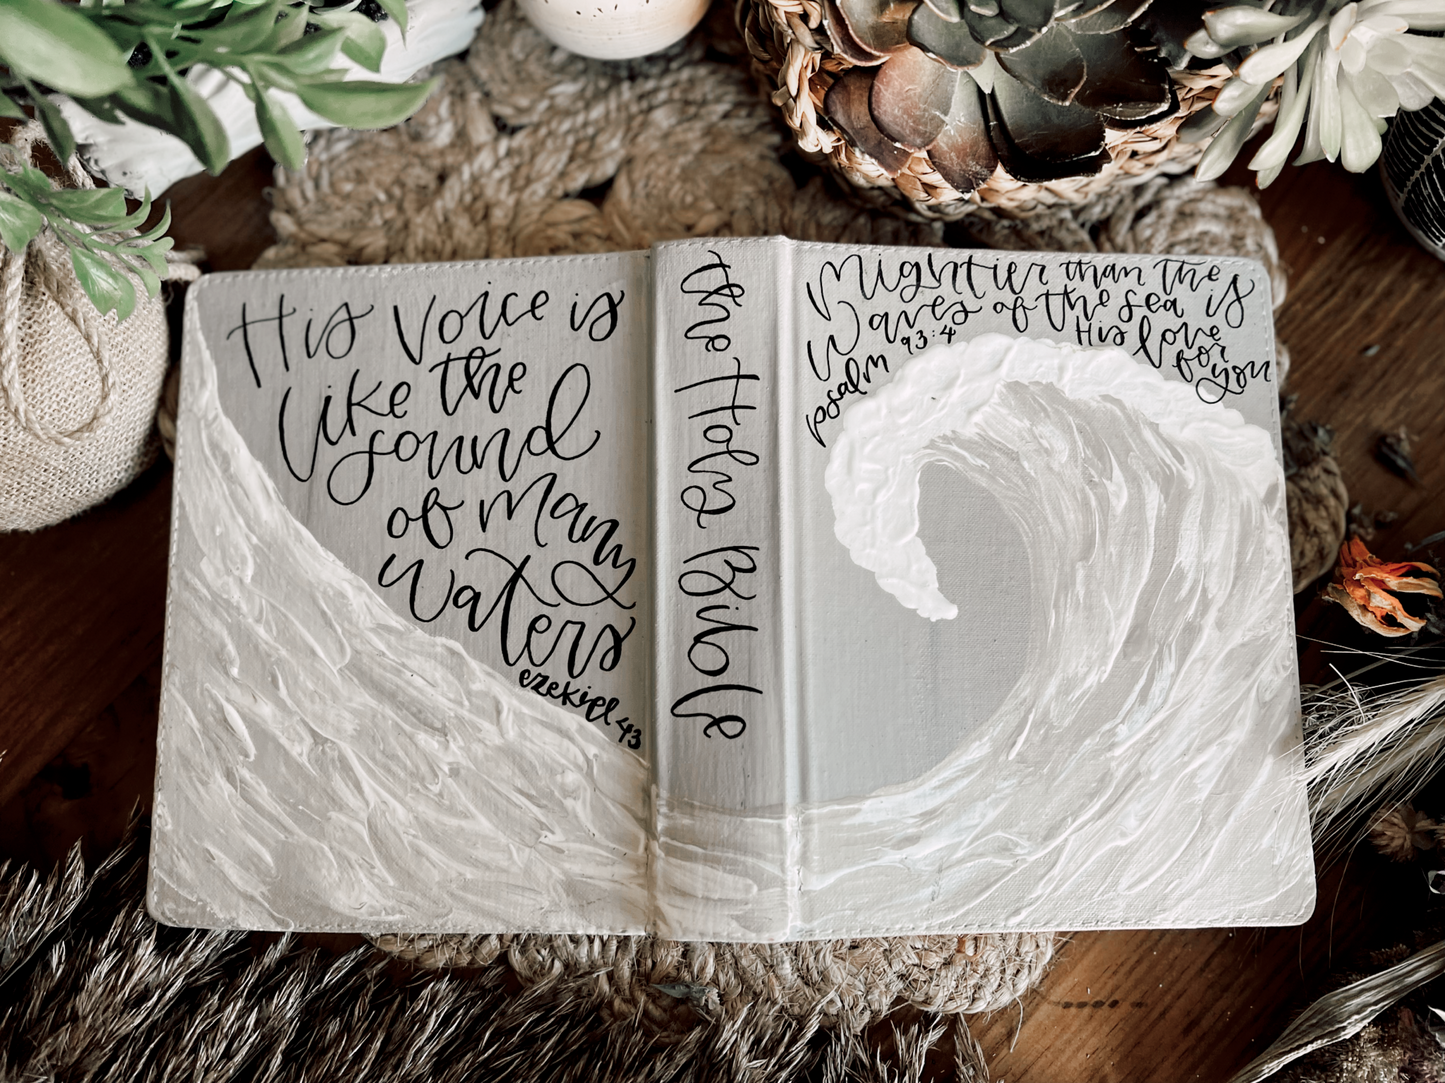 His Voice is
like the
sound
of many
waters
ezekiel 43
the Holy Bible
Mightier than the
Waves of the sea is
His love
for
you
psalm 93:4